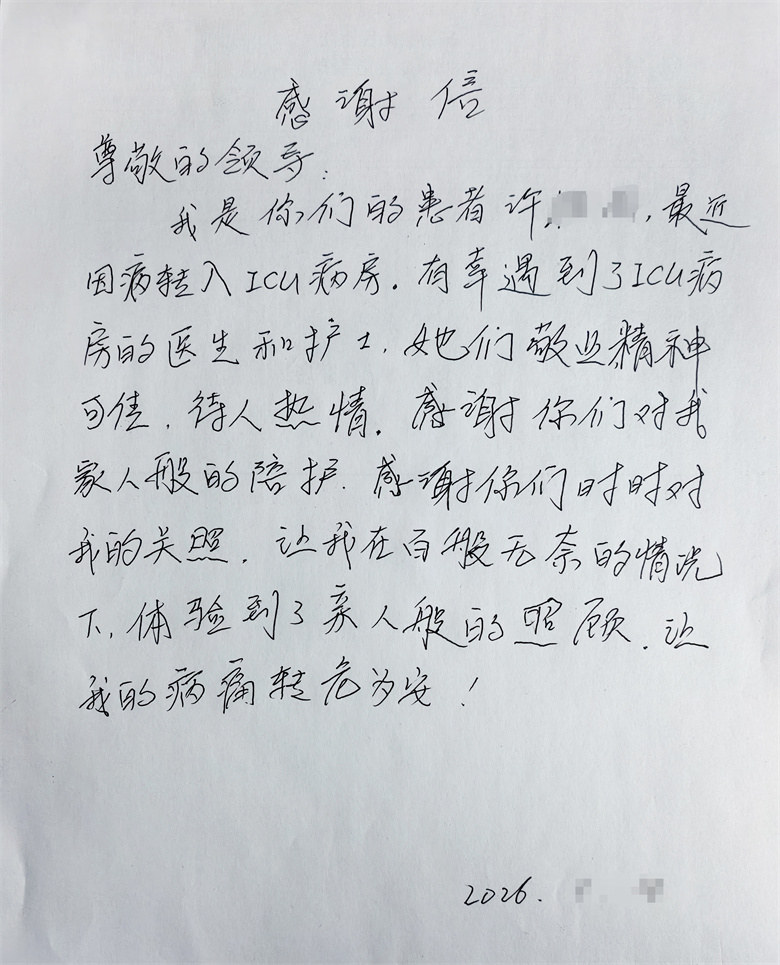 感谢信
尊敬的领导:
我是你们的患者许,最近
因病转入ICU病房.有幸遇到了ICU病
房的医生和护士.她们敬业精神
可佳.待人热情.感谢你们对我
家人般的陪护.感谢你们时时对
我的关照.让我在百般无奈的情况
下,体验到了亲人般的照顾.让
我的病痛转危为安!
2026.